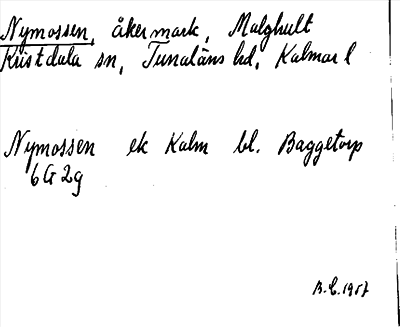 Nymossen, åkermark, Malghult
Kristdala sn, Tunaläns hd, Kalmar l
Nymossen ek Kalm bl. Baggetorp
6G2g